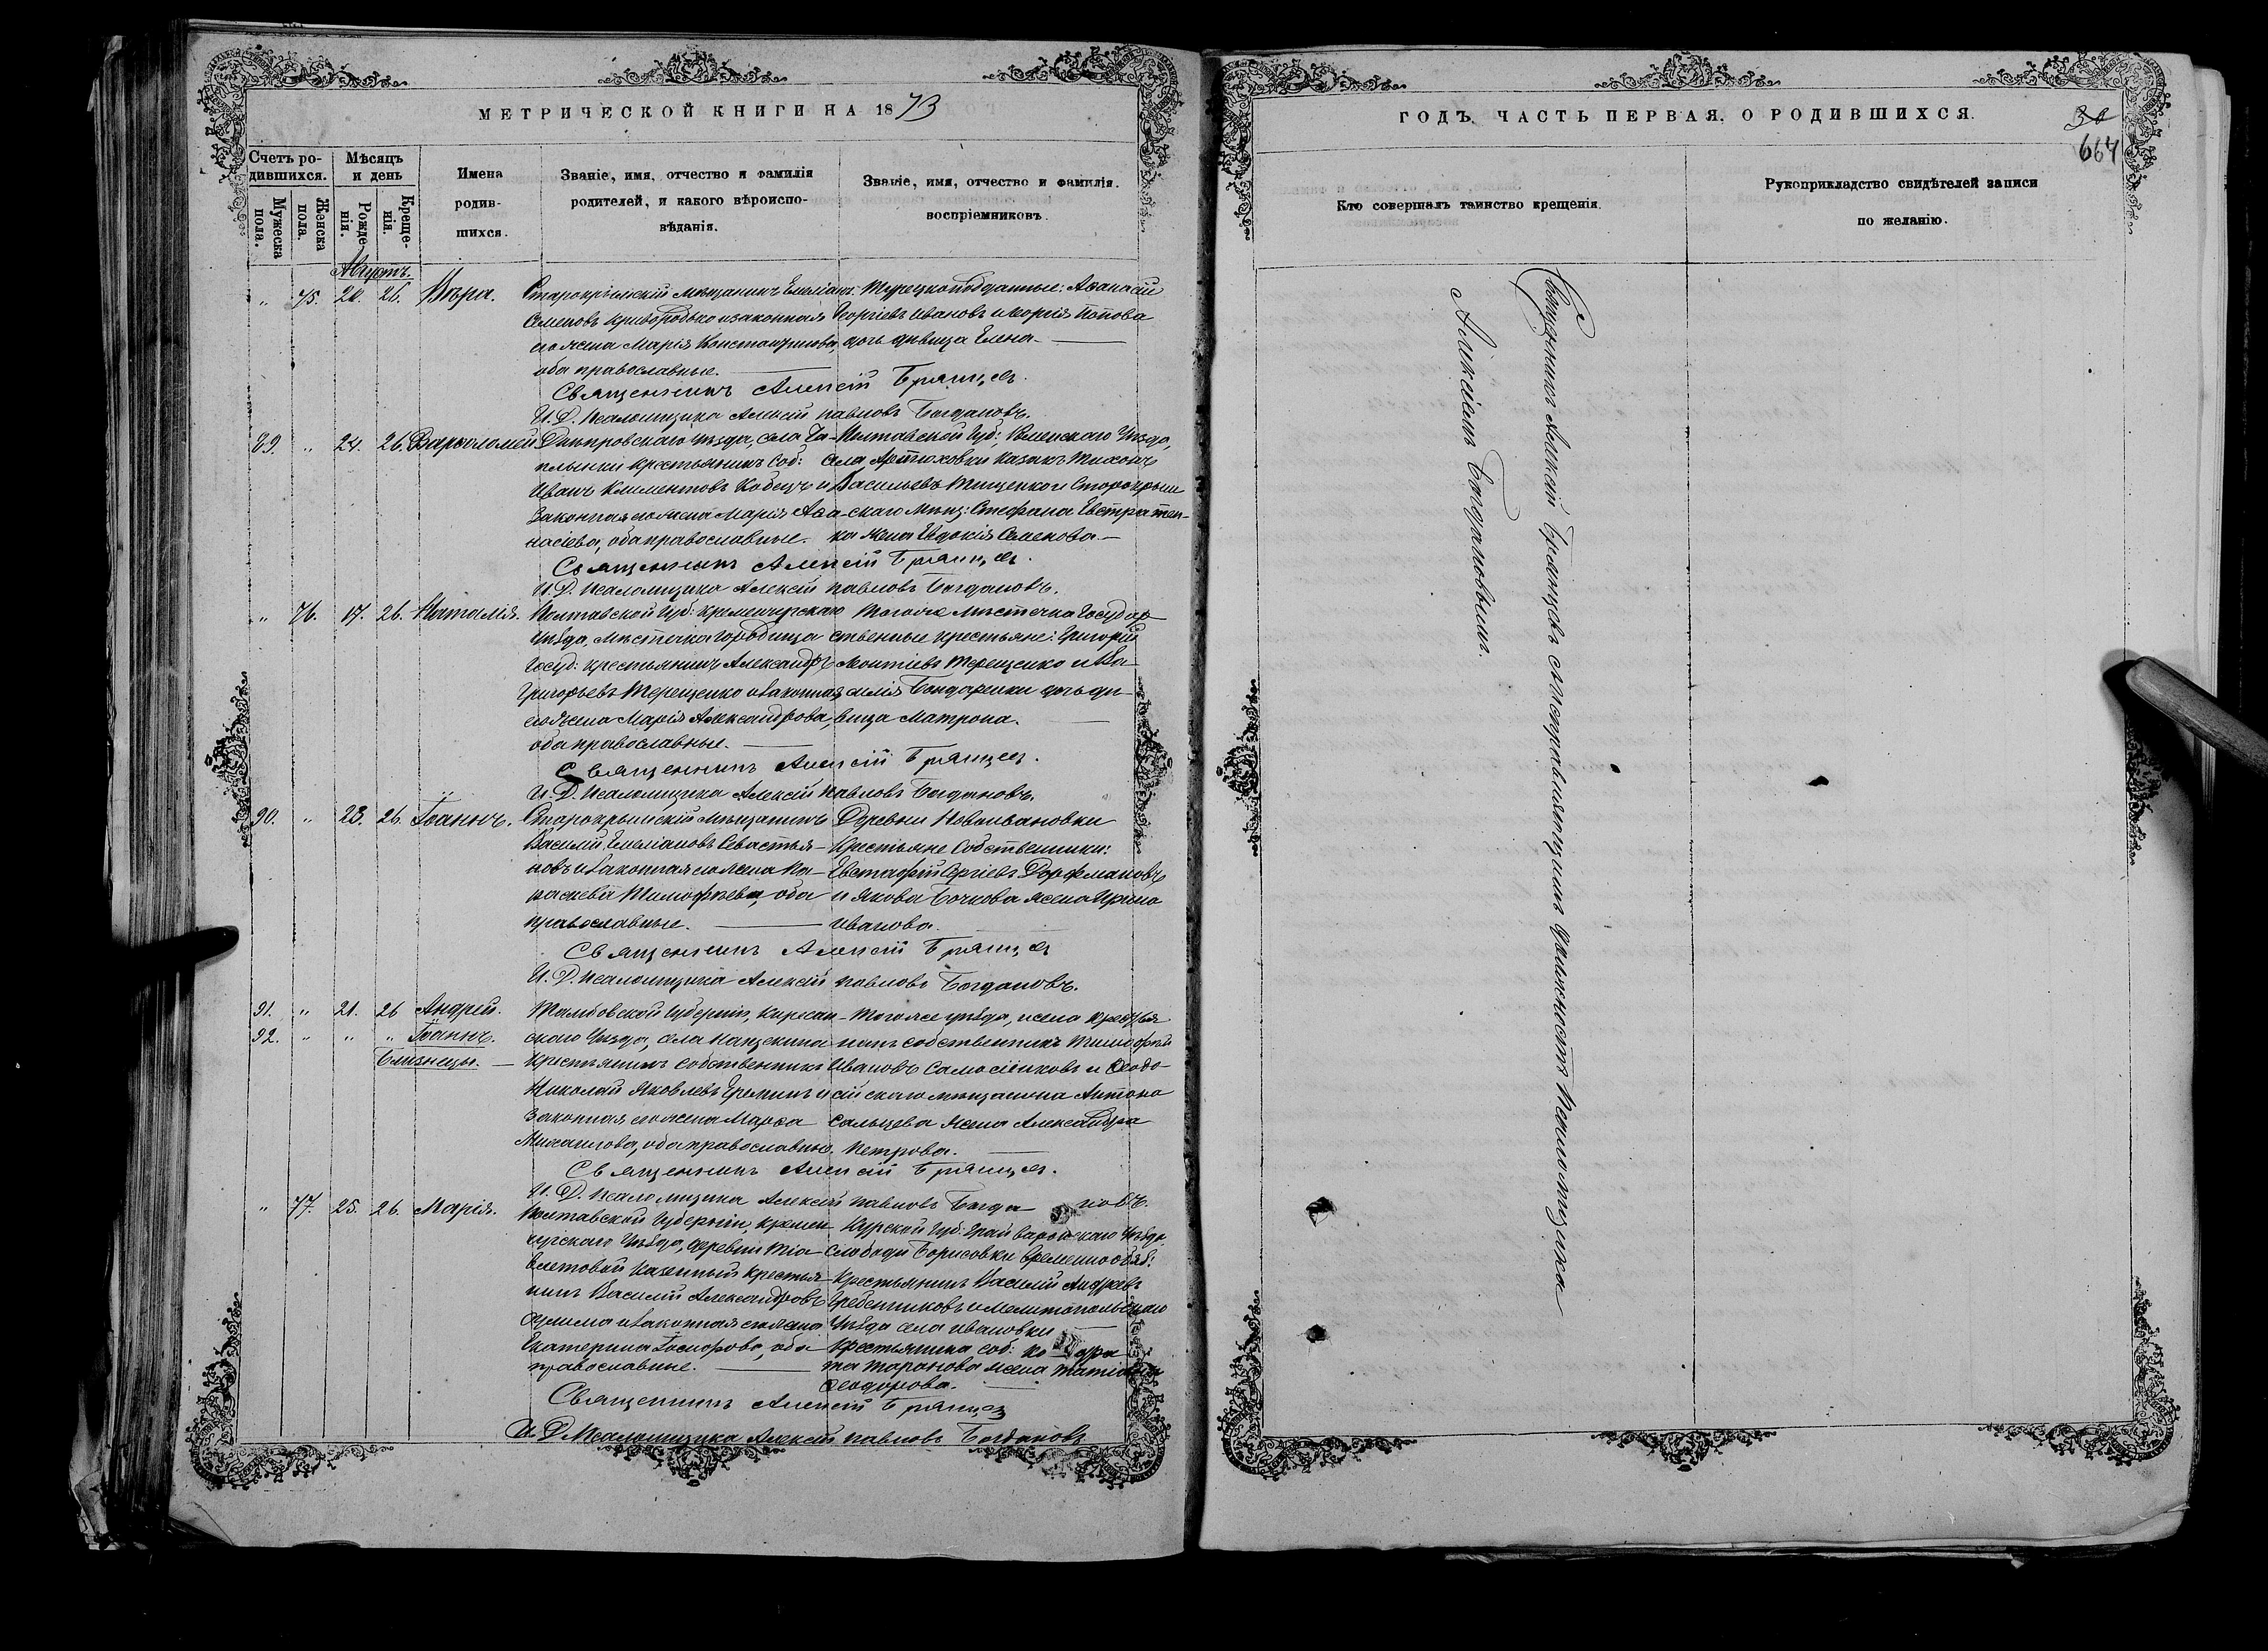 МЕТРИЧЕСКОЙ КНИГИ НА 1873
Счетъ ро-
дившихся.
Мужеска
пола.
Женска
пола.
Мѣсяцъ
и день
Рожде-
нія.
Креще-
нія.
Имена
родив-
шихся.
Званіе, имя, отчество и фамилія
родителей, и какого вѣроиспо-
вѣданія.
Званіе, имя, отчество и фамилія.
воспріемниковъ.
Августъ.
„ 75. 20. 26. Вѣра.
Старокрымскій мѣщанинъ Емеліанъ
Семеновъ и законная
его жена Марія Константинова,
оба православные.
Турецкоподданные: Аѳанасій
Георгіевъ Ивановъ и Георгія Попова
дочь дѣвица Елена.
Священникъ Алексій Брянцев.
И. Д. Псаломщика Алексѣй Павловъ Богдановъ.
89. „ 24. 26. Варѳоломей
Днѣпровскаго Уѣзда, села Ча-
плынки крестьянинъ Соб:
Иванъ Климентовъ Кобецъ и
Законная его жена Марія Аѳа-
насіева, оба православные.
Полтавской Губ: Роменскаго Уѣзда,
села Артюховки казакъ Тихонъ
Васильевъ Тищенко и Старокрым-
скаго Мѣщ: Стефана Евстратен-
ка жена Евдокія Семенова.
Священникъ Алексій Брянцев.
И. Д. Псаломщика Алексѣй Павловъ Богдановъ.
„ 76. 17. 26. Наталія.
Полтавской Губ: Кременчугскаго
Уѣзда, Мѣстечка Городища
Госуд: крестьянинъ Александръ
Григорьевъ Терещенко и законная
его жена Марія Александрова,
оба православные.
Того же мѣстечка Государ-
ственные крестьяне: Григорій
Леонтіевъ Терещенко и Ва-
силія Бондаренки дочь дѣ-
вица Матрона.
Священникъ Алексій Брянцев.
И. Д. Псаломщика Алексѣй Павловъ Богдановъ.
90. „ 23. 26. Іоаннъ.
Старокрымскій мѣщанинъ
Василій Емеліановъ Севастья-
новъ и законная его жена Па-
раскевія Тимофѣева, оба
православные.
Деревни Новоивановки
Крестьяне Собственники:
Евстафій Сергіевъ
и Якова Бочкова жена Ирина
Иванова.
Священникъ Алексій Брянцев
И. Д. Псаломщика Алексѣй Павловъ Богдановъ.
91. „ 21. 26 Андрей.
92. „ „ „ Іоаннъ.
Близнецы.
Тамбовской Губерніи, Кирсан-
скаго Уѣзда, села
крестьянинъ собственникъ
Николай Яковлевъ Еремин и
Законная его жена Марѳа
Михаилова, оба православные.
Того же уѣзда, и села крестья-
нинъ собственникъ Тимофей
Ивановъ и Ѳеодо-
сійскаго мѣщанина Антона
Сальцева жена Александра
Петрова.
Священникъ Алексій Брянцев.
И. Д. Псаломщика Алексѣй Павловъ Богдановъ.
„ 77. 25. 26. Марія.
Полтавской Губерніи, Кремен-
чугскаго Уѣзда, деревни
казенный крестья-
нинъ Василій Александровъ
и законная его жена
Екатерина оба
православные.
Курской Губ: Грайворонскаго Уѣзда
слободы Борисовки временнообяз:
Крестьянинъ Василій Андреевъ
Гребенниковъ и Мелитопольскаго
Уѣзда села Ивановки
Крестьянина соб: Кондра-
та Таранова жена Татіана
Ѳеодорова.
Священникъ Алексій Брянцев
И. Д. Псаломщика Алексѣй Павловъ Богдановъ
ГОДЪ, ЧАСТЬ ПЕРВАЯ, О РОДИВШИХСЯ.
30
664
Кто совершалъ таинство крещенія.
Рукоприкладство свидѣтелей записи
по желанію.
Священникъ Алексій Брянцевъ съ исправляющимъ должность Псаломщика
Алексіемъ Богдановымъ.